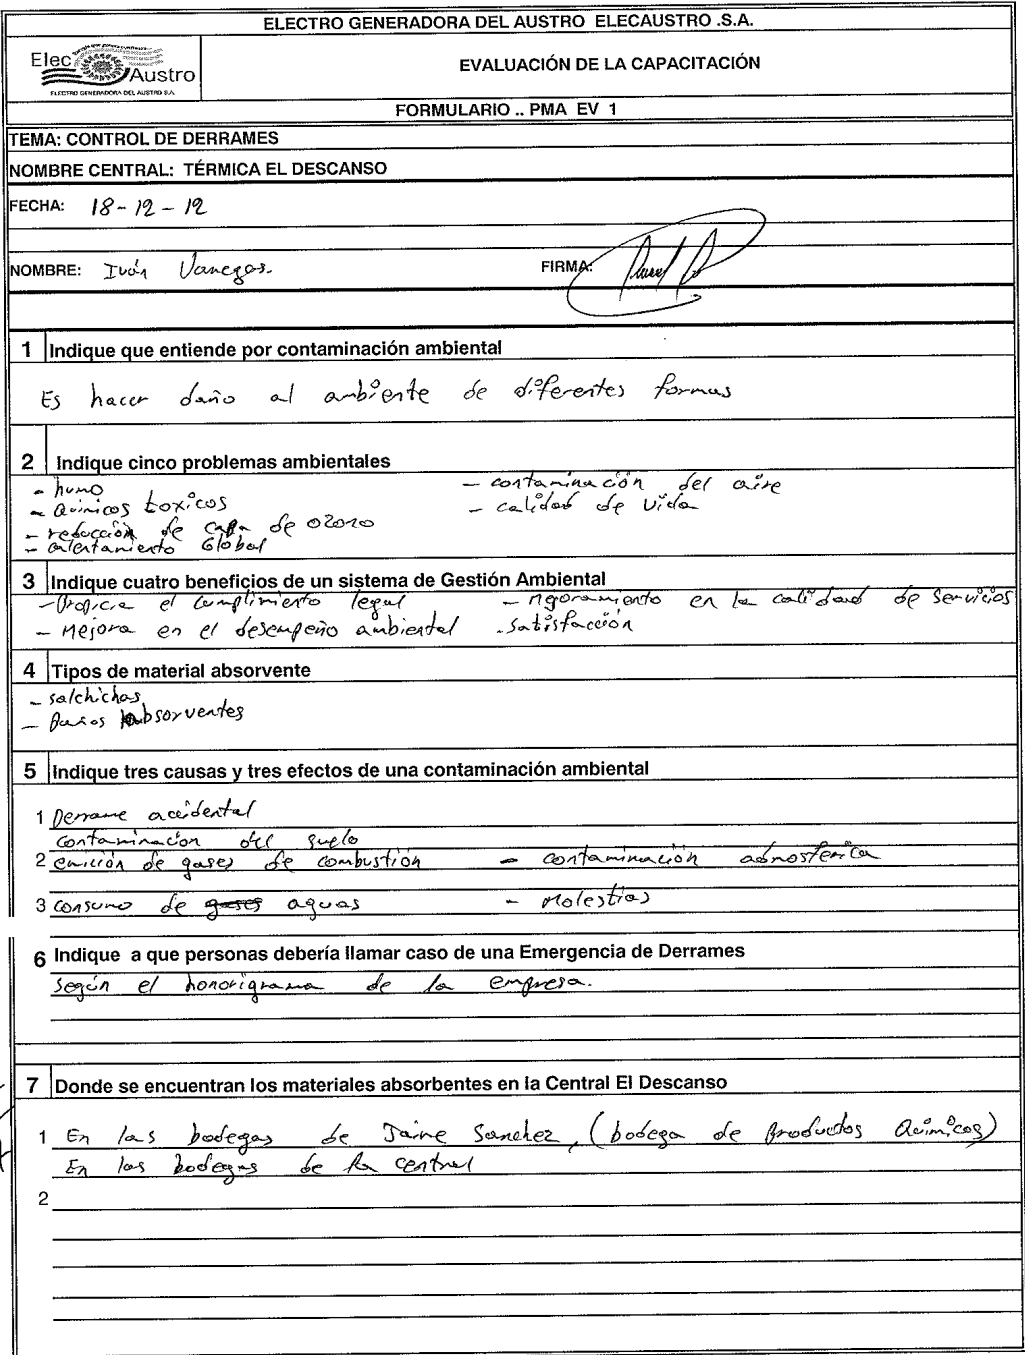 ELECTRO GENERADORA DEL AUSTRO ELECAUSTRO .S.A.
Elec Austro
ELECTRO GENERADORA DEL AUSTRO S.A.
EVALUACIÓN DE LA CAPACITACIÓN
FORMULARIO .. PMA EV 1
TEMA: CONTROL DE DERRAMES
NOMBRE CENTRAL: TÉRMICA EL DESCANSO
FECHA: 18-12-12
NOMBRE: Iván Vanegas. FIRMA:
1 Indique que entiende por contaminación ambiental
Es hacer daño al ambiente de diferentes formas
2 Indique cinco problemas ambientales
- humo - contaminación del aire
- Químicos toxicos - calidad de vida
- reducción de capa de ozono
- calentamiento Global
3 Indique cuatro beneficios de un sistema de Gestión Ambiental
- Propicia el cumplimiento legal - mejoramiento en la calidad de servicios
- Mejora en el desempeño ambiental - satisfacción
4 Tipos de material absorvente
- salchichas
- paños absorventes
5 Indique tres causas y tres efectos de una contaminación ambiental
1 Derrame accidental
contaminacion del suelo
2 emición de gases de combustión - contaminación admosferica
3 consumo de gases aguas - Molestias
6 Indique a que personas debería llamar caso de una Emergencia de Derrames
según el honorigrama de la empresa.
7 Donde se encuentran los materiales absorbentes en la Central El Descanso
1 En las bodegas de Jaime Sanchez, (bodega de Productos Químicos)
En las bodegas de la central
2